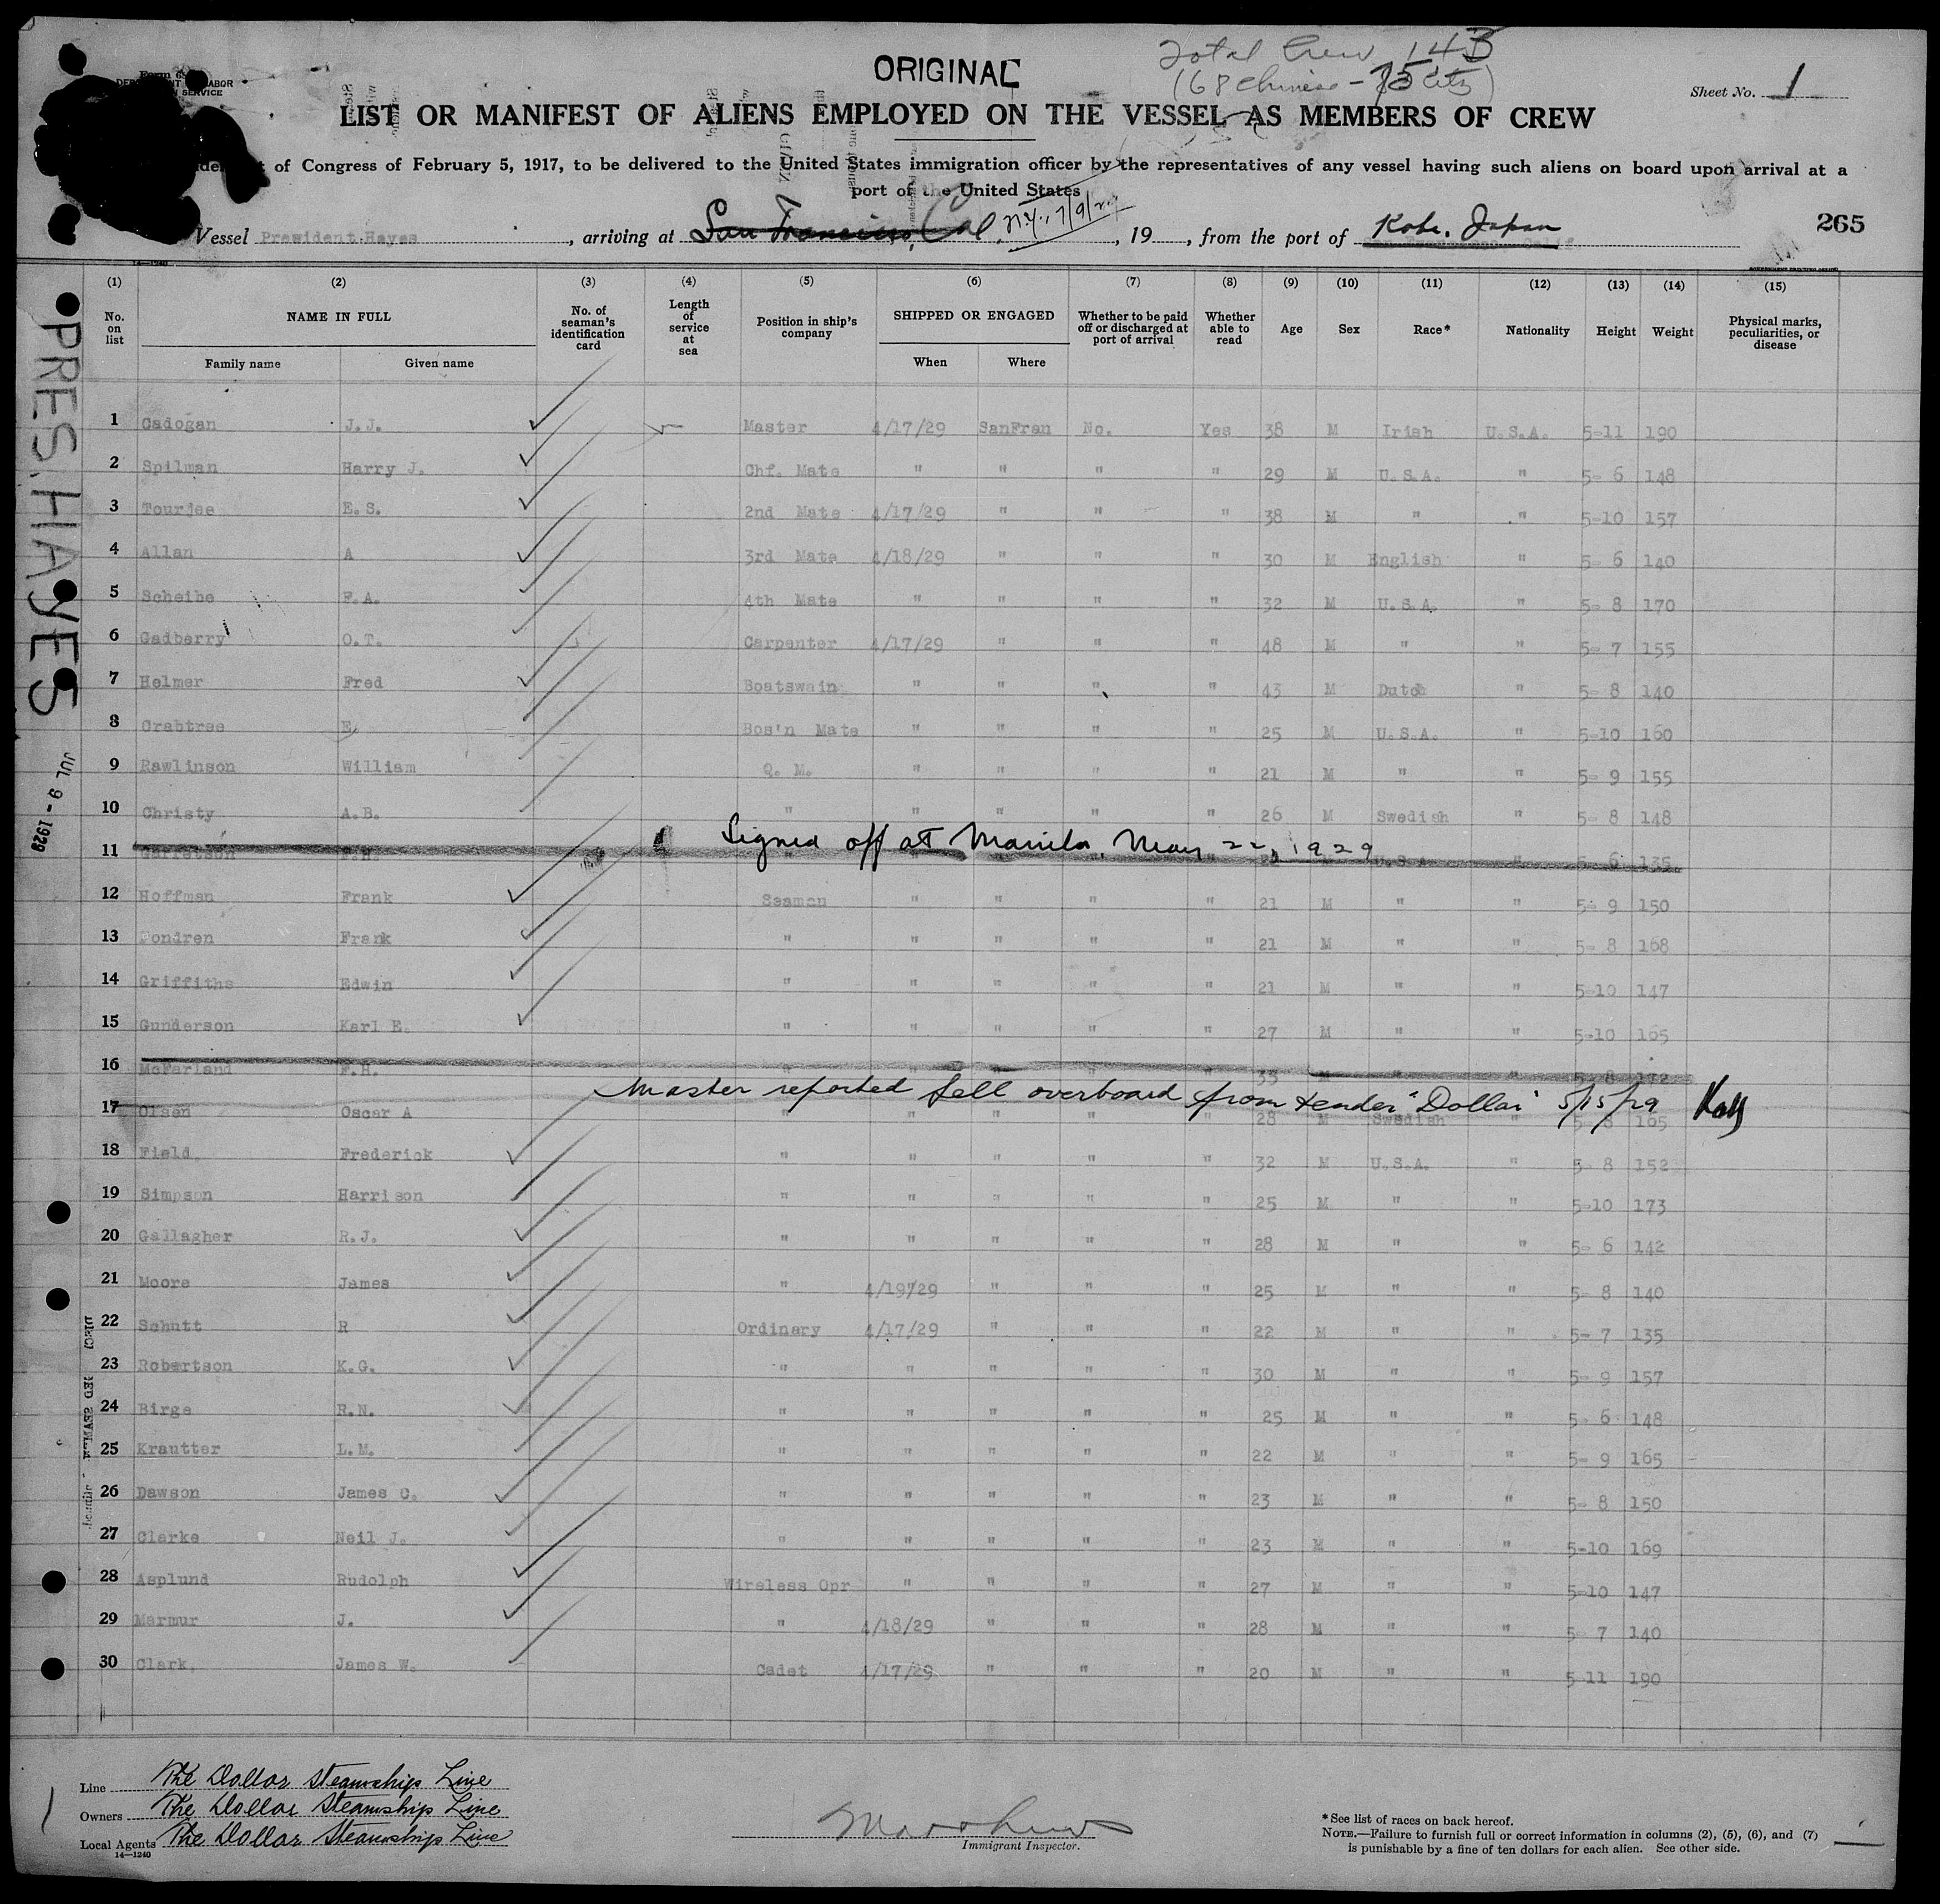 ORIGINAL
Total Crew 143
(68 Chinese - 75 Citz)
Sheet No. 1
LIST OR MANIFEST OF ALIENS EMPLOYED ON THE VESSEL AS MEMBERS OF CREW
of Congress of February 5, 1917, to be delivered to the United States immigration officer by the representatives of any vessel having such aliens on board upon arrival at a
port of the United States
Vessel President Hayes, arriving at San Francisco, Cal. N.Y., 7/9/29, 19, from the port of Kobe, Japan
265
PRES. HAYES
JUL 9 - 1929
(1) (2) (3) (4) (5) (6) (7) (8) (9) (10) (11) (12) (13) (14) (15)
No. on list NAME IN FULL No. of seaman's identification card Length of service at sea Position in ship's company SHIPPED OR ENGAGED Whether to be paid off or discharged at port of arrival Whether able to read Age Sex Race* Nationality Height Weight Physical marks, peculiarities, or disease
Family name Given name When Where
1 Cadogan J.J. Master 4/17/29 SanFran No. Yes 38 M Irish U.S.A. 5-11 190
2 Spilman Harry J. Chf. Mate " " " " 29 M U.S.A. " 5- 6 148
3 Tourjee E.S. 2nd Mate 4/17/29 " " " 38 M " " 5-10 157
4 Allan A 3rd Mate 4/18/29 " " " 30 M English " 5- 6 140
5 Scheibe F.A. 4th Mate " " " " 32 M U.S.A. " 5- 8 170
6 Gadberry O.T. Carpenter 4/17/29 " " " 48 M " " 5- 7 155
7 Helmer Fred Boatswain " " " " 43 M Dutch " 5- 8 140
8 Crabtree E. Bos'n Mate " " " " 25 M U.S.A. " 5-10 160
9 Rawlinson William Q. M. " " " " 21 M " " 5- 9 155
10 Christy A.B. " " " " " 26 M Swedish " 5- 8 148
Signed off at Manila, May 22, 1929
11 Garretson U.S.A. " 5- 6 135
12 Hoffman Frank Seaman " " " " 21 M " " 5- 9 150
13 Pondren Frank " " " " " 21 M " " 5- 8 168
14 Griffiths Edwin " " " " " 21 M " " 5-10 147
15 Gunderson Karl E. " " " " " 27 M " " 5-10 165
16 McFarland F.H. " " " " " 33 M " " 5- 8 172
Master reported fell overboard from tender "Dollar" 5/15/29
17 Olsen Oscar A " " " " " 28 M Swedish " 5- 8 165
18 Field, Frederick " " " " " 32 M U.S.A. " 5- 8 152
19 Simpson Harrison " " " " " 25 M " " 5-10 173
20 Gallagher R.J. " " " " " 28 M " " 5- 6 142
21 Moore James " 4/19/29 " " " 25 M " " 5- 8 140
22 Schutt R Ordinary 4/17/29 " " " 22 M " " 5- 7 135
23 Robertson K.G. " " " " " 30 M " " 5- 9 157
24 Birge R.N. " " " " " 25 M " " 5- 6 148
25 Krautter L.M. " " " " " 22 M " " 5- 9 165
26 Dawson James C. " " " " " 23 M " " 5- 8 150
27 Clarke Neil J. " " " " " 23 M " " 5-10 169
28 Asplund Rudolph Wireless Opr " " " " 27 M " " 5-10 147
29 Marmur J. " 4/18/29 " " " 28 M " " 5- 7 140
30 Clark, James W. Cadet 4/17/29 " " " 20 M " " 5-11 190
Line The Dollar Steamship Line
Owners The Dollar Steamship Line
Local Agents The Dollar Steamship Line
14—1240
Immigrant Inspector.
*See list of races on back hereof.
NOTE.—Failure to furnish full or correct information in columns (2), (5), (6), and (7)
is punishable by a fine of ten dollars for each alien. See other side.